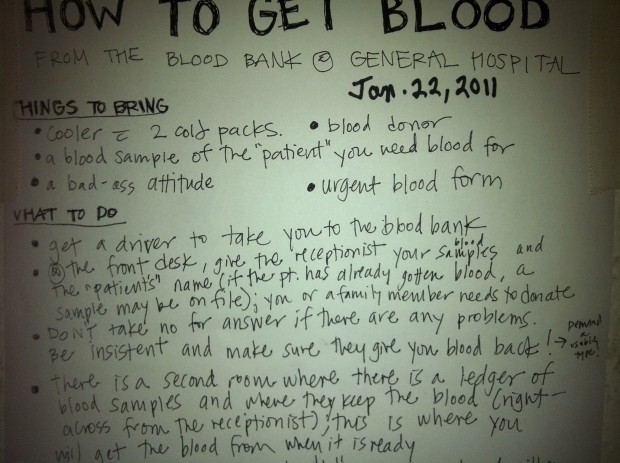 HOW TO GET BLOOD
FROM THE BLOOD BANK @ GENERAL HOSPITAL
Jan. 22, 2011
THINGS TO BRING
• cooler c 2 cold packs. • blood donor
• a blood sample of the "patient" you need blood for
• a bad-ass attitude • urgent blood form
WHAT TO DO
• get a driver to take you to the blood bank
• @ the front desk, give the receptionist your blood samples and
the "patients" name (if the pt. has already gotten blood, a
sample may be on file); you or a family member needs to donate
• DON'T take no for answer if there are any problems.
Be insistent and make sure they give you blood back! → demand
• there is a second room where there is a ledger of
blood samples and where they keep the blood (right
across from the receptionist); this is where you
will get the blood from when it is ready